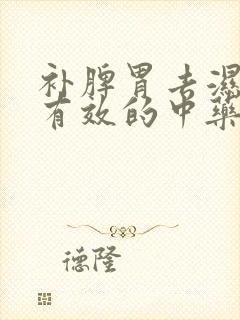 补脾胃去湿
有效的中药
德隆